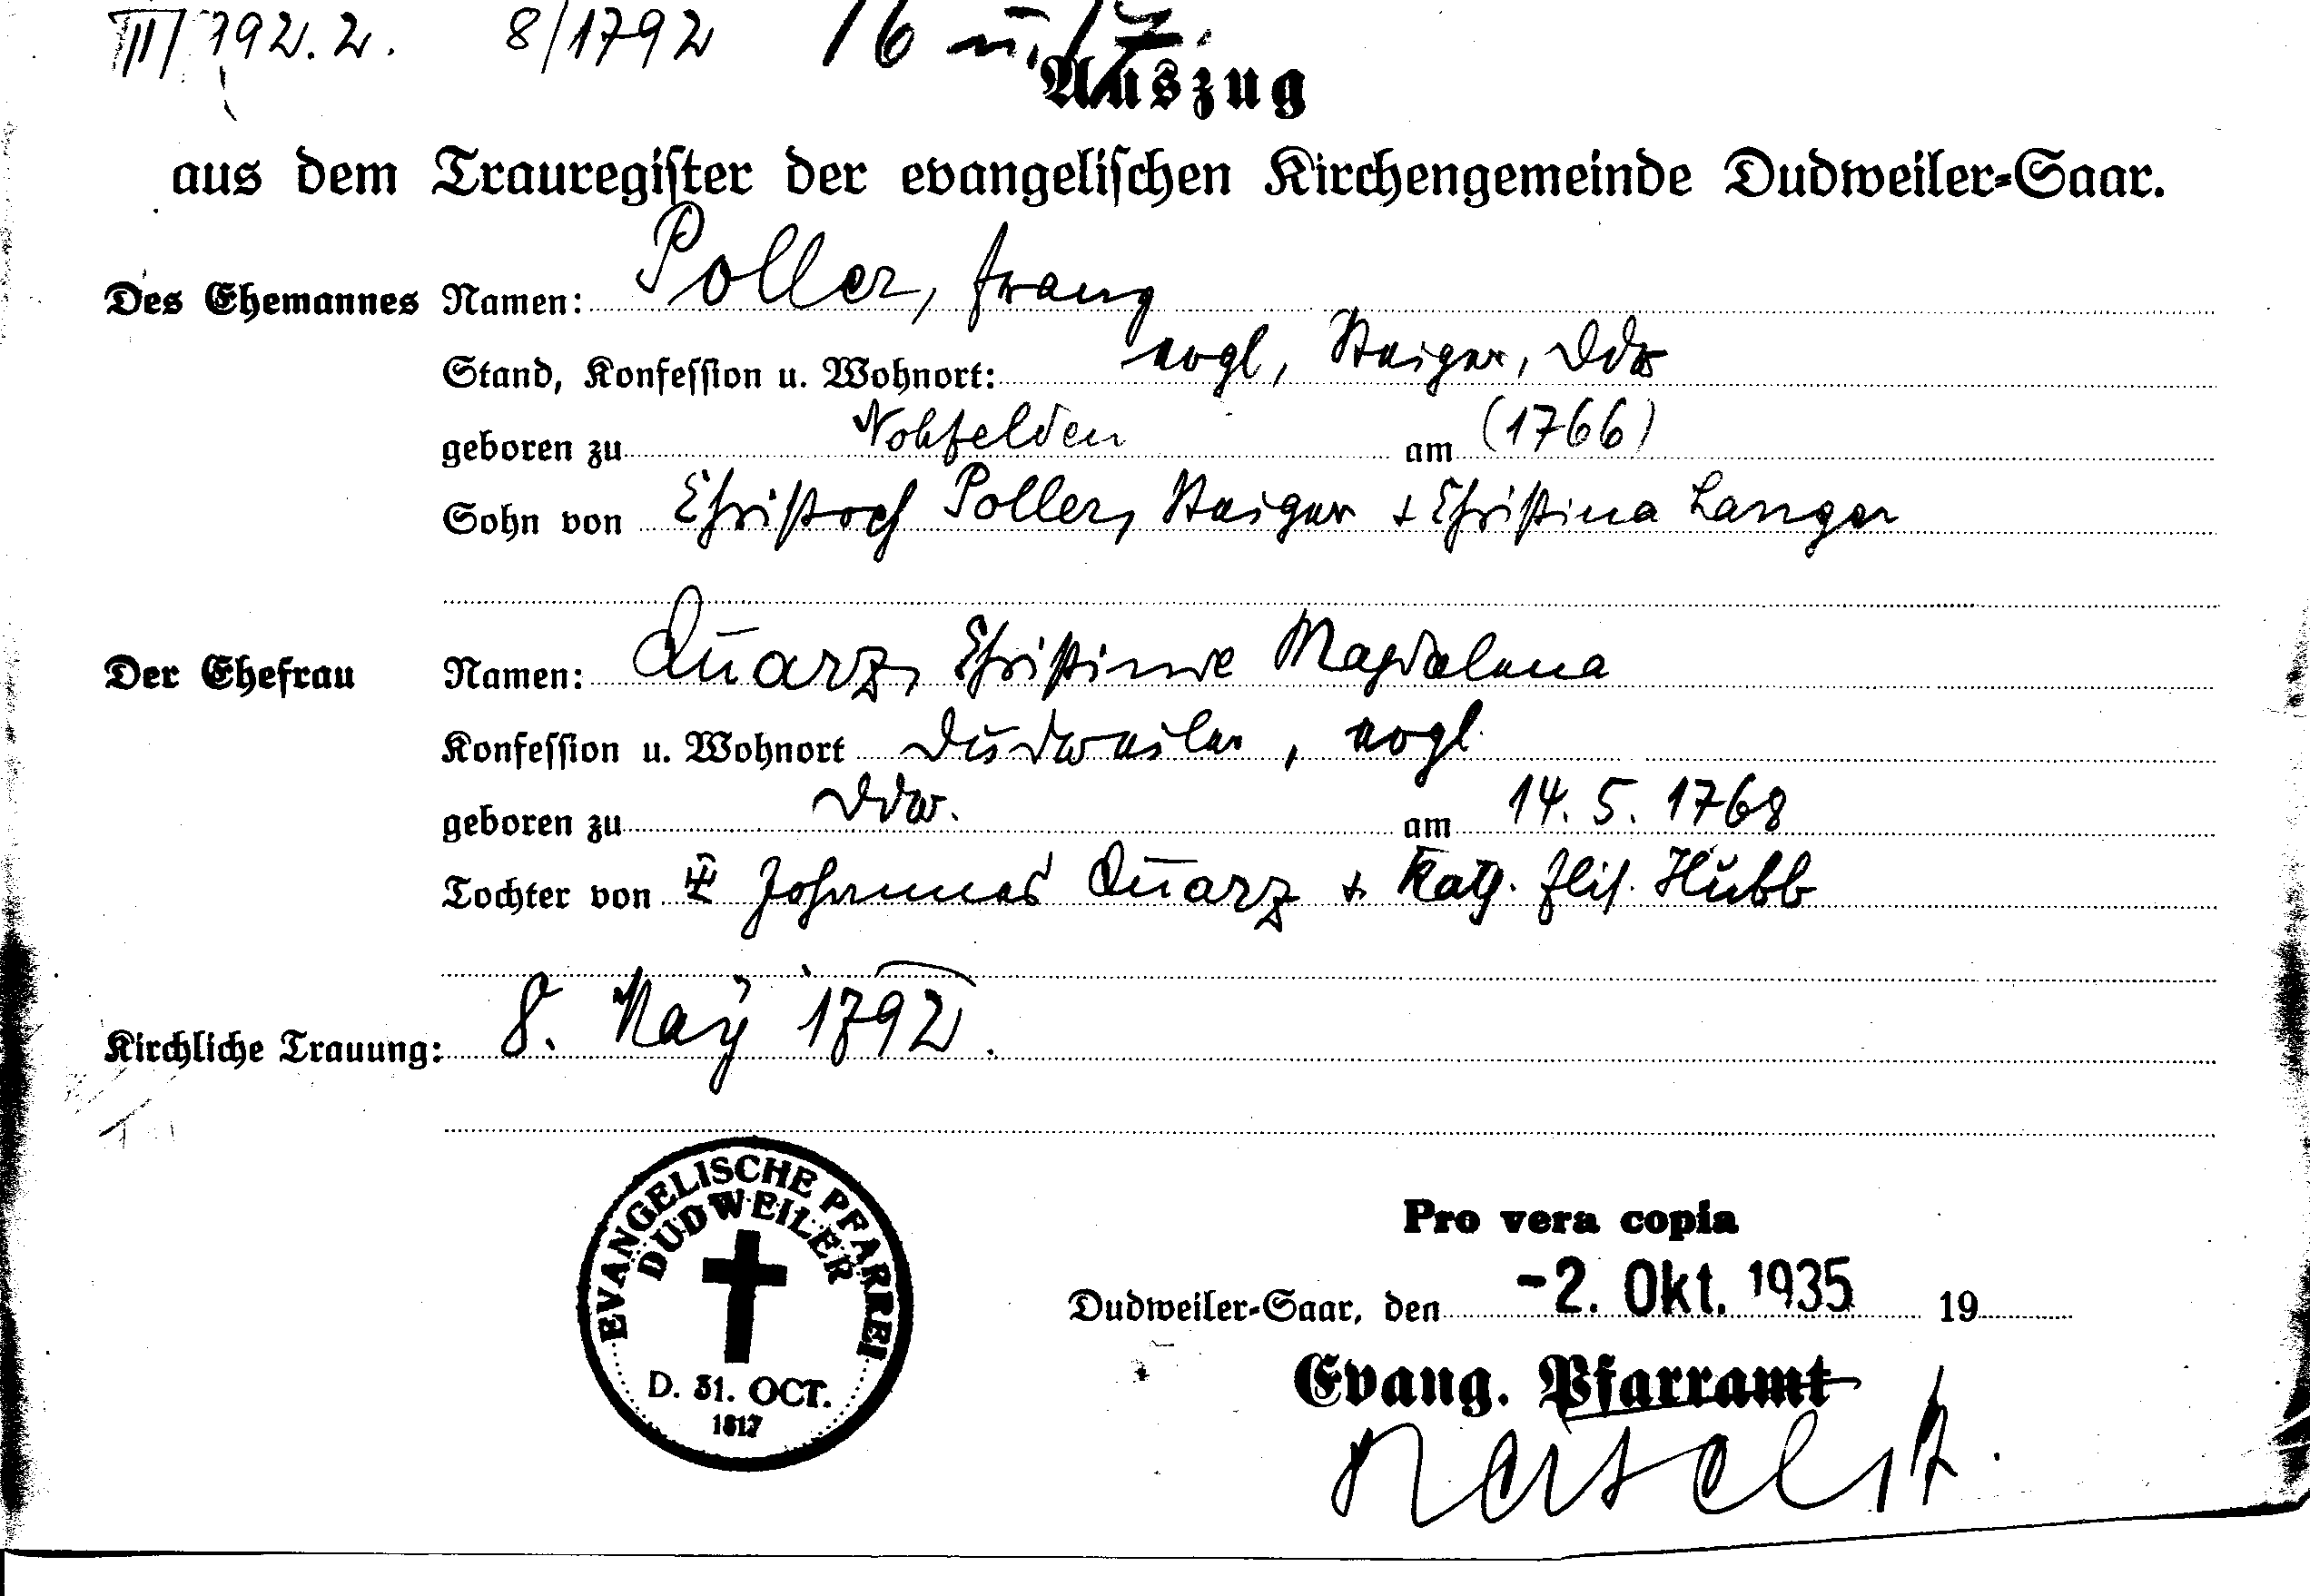 III/192.2. 8/1792 16 u. 17.
Auszug
aus dem Trauregister der evangelischen Kirchengemeinde Dudweiler-Saar.
Des Ehemannes Namen: Poller, Franz
Stand, Konfession u. Wohnort: evgl, Steiger, Ddw
geboren zu Nohfelden am (1766)
Sohn von Christoph Poller, Steiger + Christina Langer
Der Ehefrau Namen: Quarz, Christine Magdalena
Konfession u. Wohnort Dudweiler, evgl.
geboren zu Ddw. am 14. 5. 1768
Tochter von Johannes Quarz + Kath. Elis. Hubb
Kirchliche Trauung: 8. May 1792.
EVANGELISCHE PFARREI
DUDWEILER
D. 31. OCT.
1817
Pro vera copia
Dudweiler-Saar, den -2. Okt. 1935 19
Evang. Pfarramt